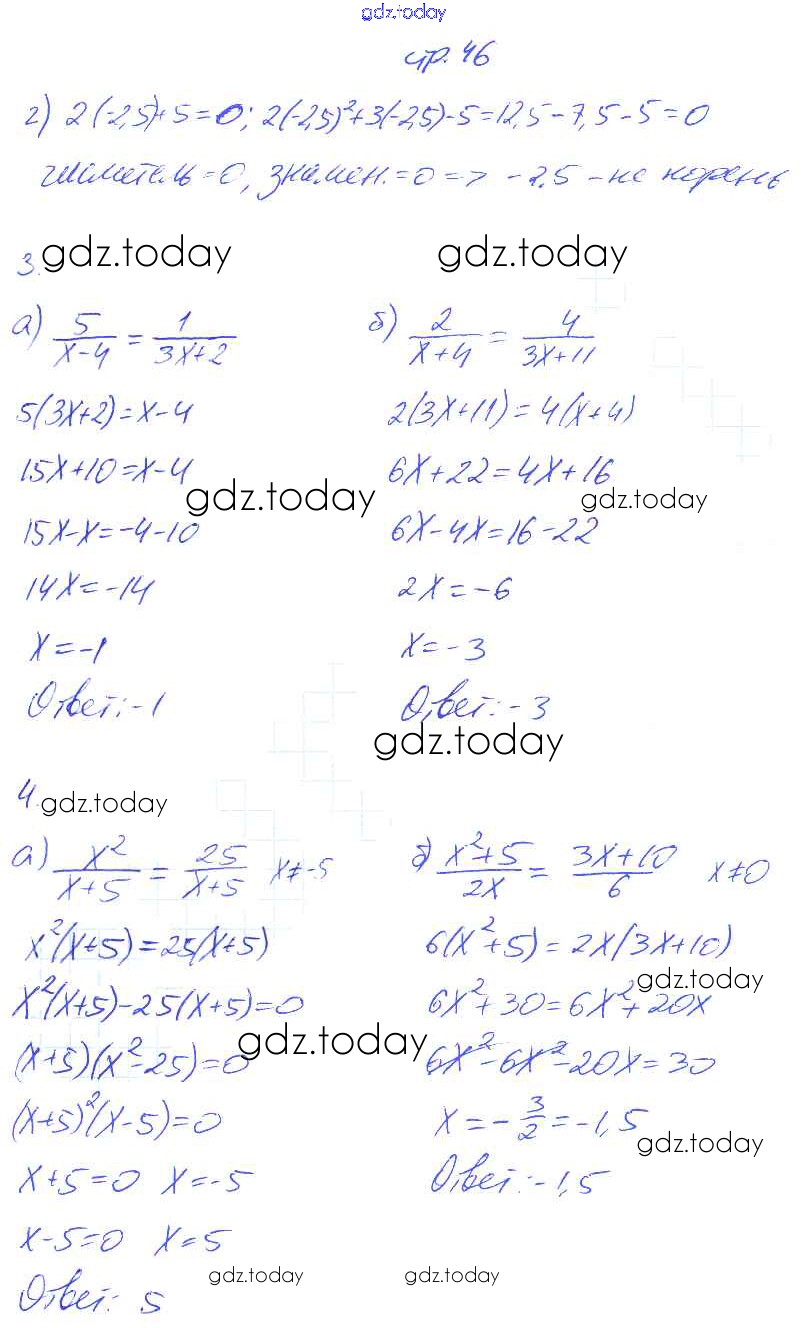 gdz.today
стр. 46
г) 2(-2,5)+5=0; 2(-2,5)²+3(-2,5)-5=12,5-7,5-5=0
числитель=0, знамен.=0=> -2,5 - не корень
3. gdz.today gdz.today
а) 5/(x-4) = 1/(3x+2) б) 2/(x+4) = 4/(3x+11)
5(3x+2)=x-4 2(3x+11)=4(x+4)
15x+10=x-4 6x+22=4x+16
gdz.today gdz.today
15x-x=-4-10 6x-4x=16-22
14x=-14 2x=-6
x=-1 x=-3
Ответ:-1 Ответ:-3
gdz.today
4. gdz.today
а) x²/(x+5) = 25/(x+5) x≠-5 б) (x²+5)/2x = (3x+10)/6 x≠0
x²(x+5)=25(x+5) 6(x²+5)=2x(3x+10)
gdz.today
x²(x+5)-25(x+5)=0 6x²+30=6x²+20x
gdz.today
(x+5)(x²-25)=0 6x²-6x²-20x=30
(x+5)²(x-5)=0 x=-3/2=-1,5
gdz.today
x+5=0 x=-5 Ответ:-1,5
x-5=0 x=5
gdz.today gdz.today
Ответ: 5